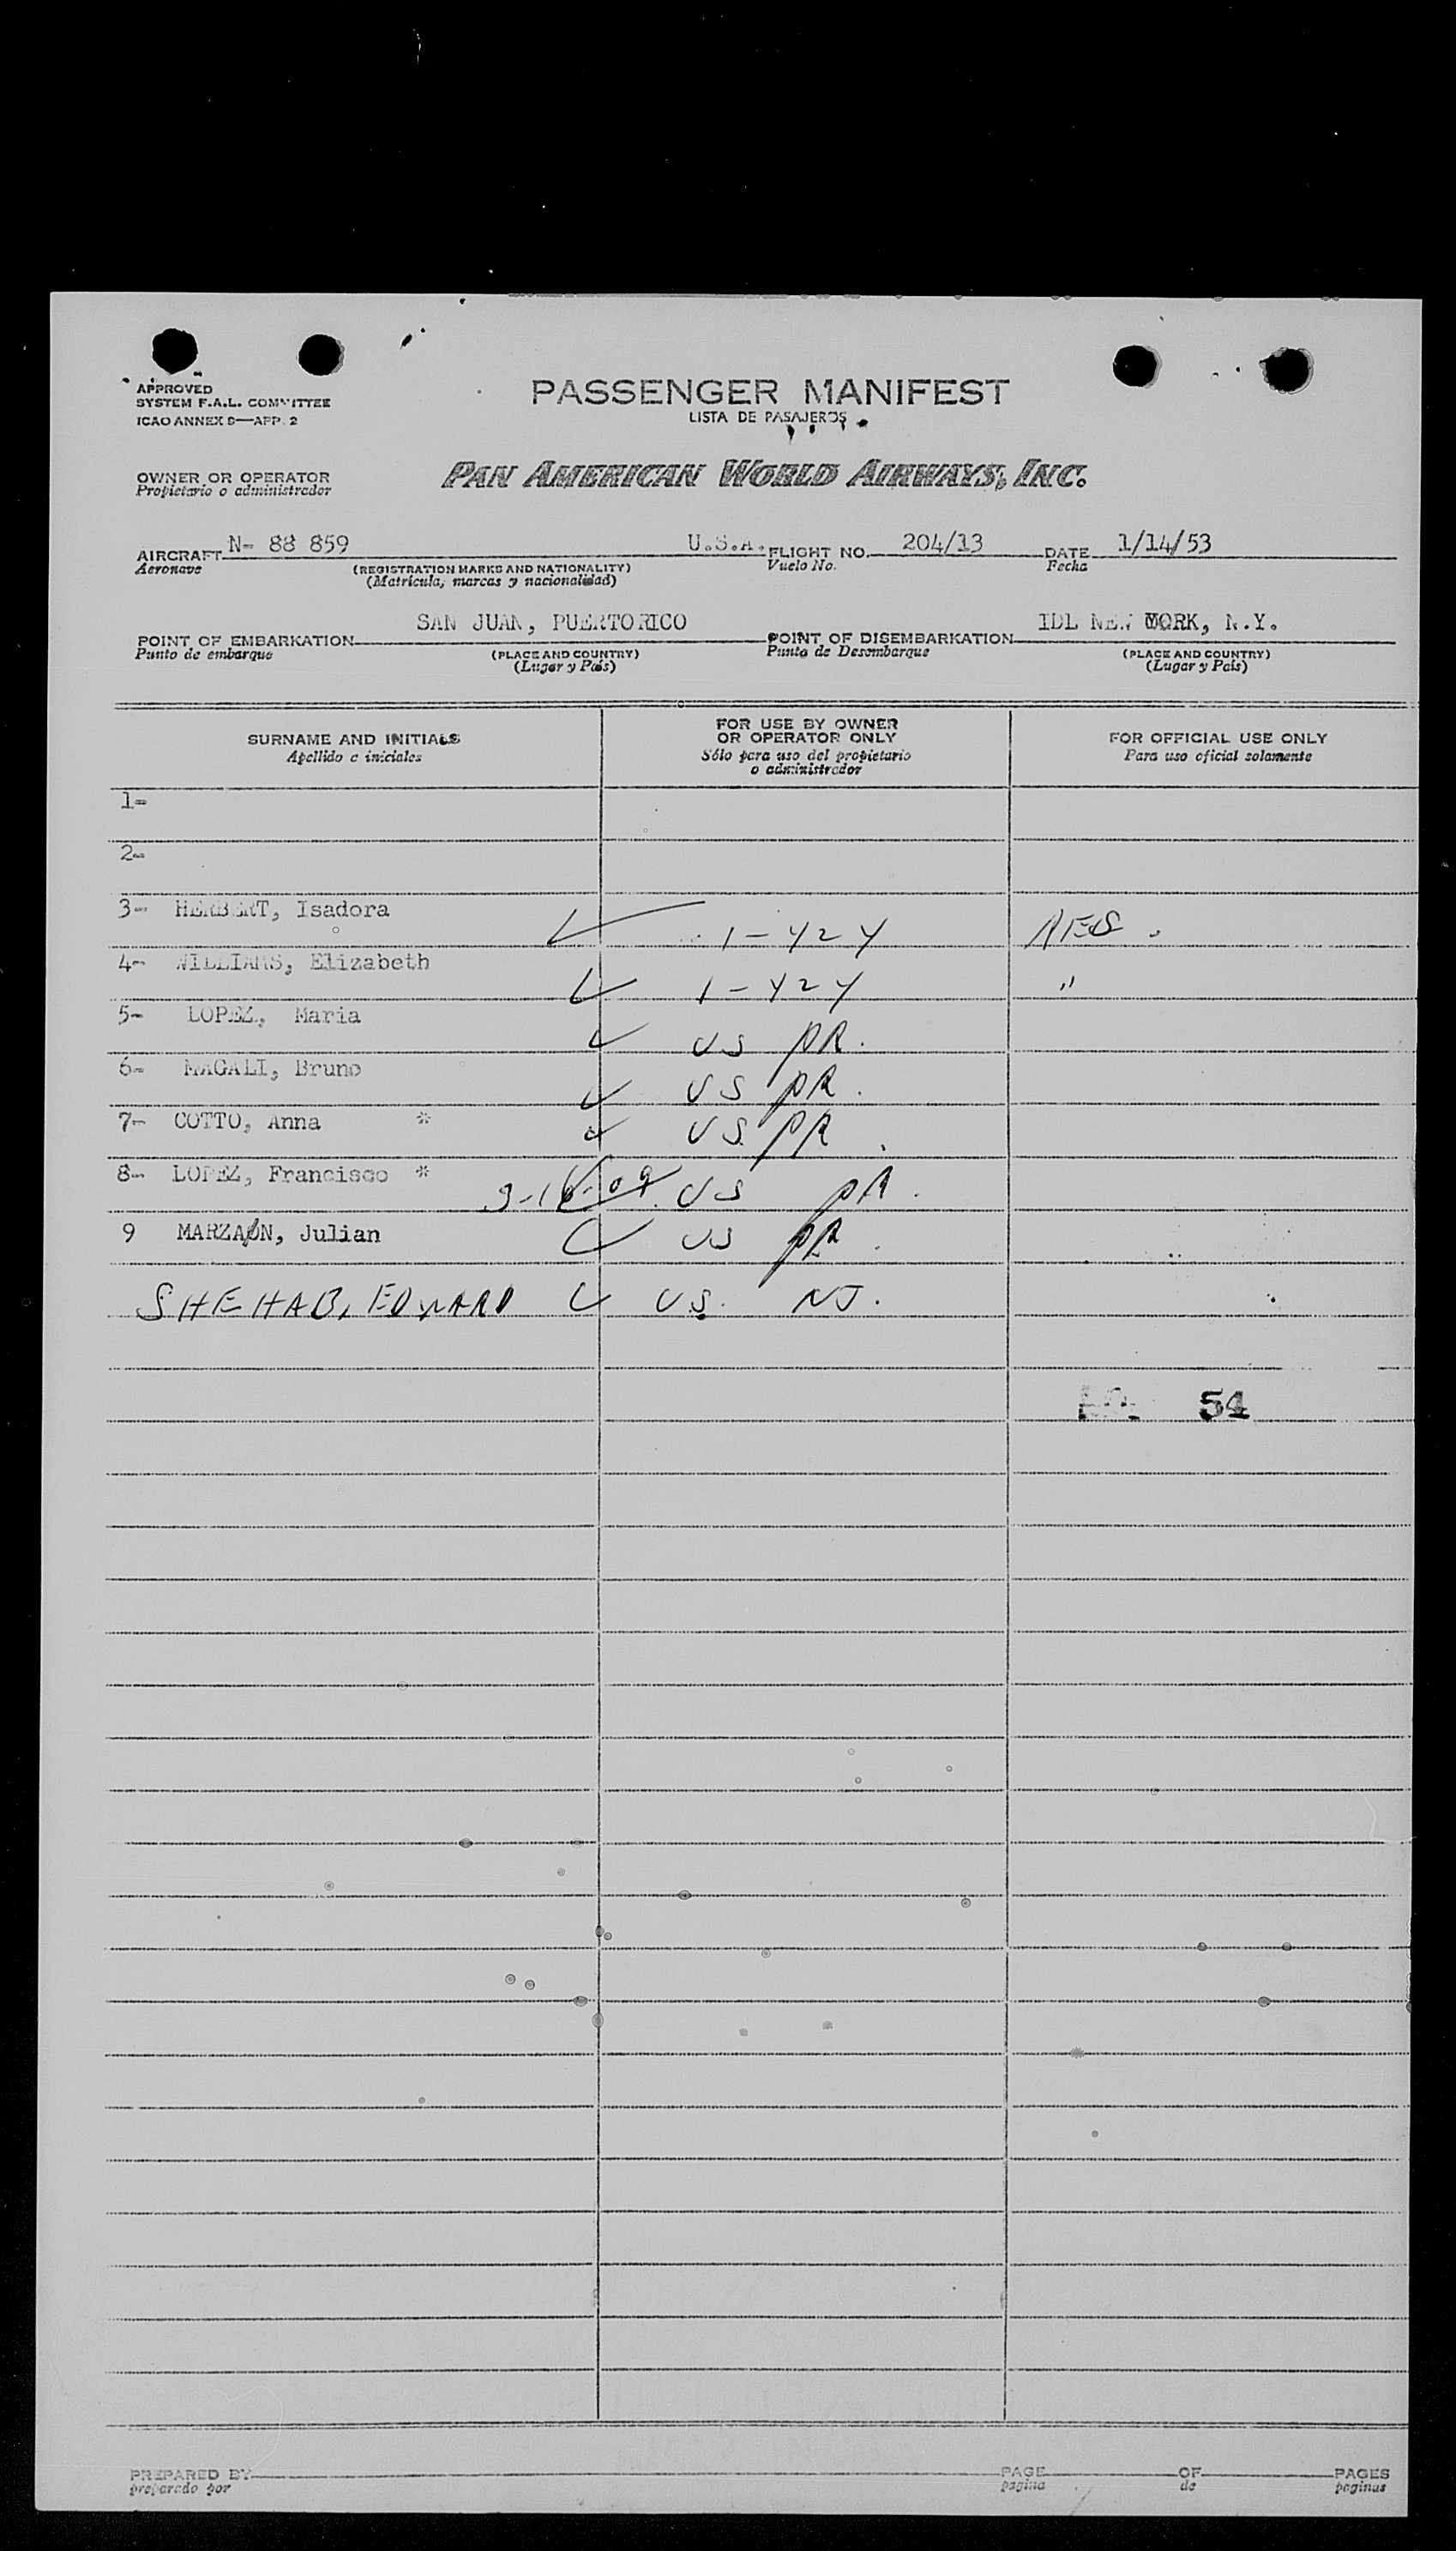 APPROVED
SYSTEM F.A.L. COMMITTEE
ICAO ANNEX 9—APP. 2
PASSENGER MANIFEST
LISTA DE PASAJEROS
OWNER OR OPERATOR
Propietario o administrador
PAN AMERICAN WORLD AIRWAYS, INC.
AIRCRAFT N- 88 859 U.S.A. FLIGHT NO. 204/13 DATE 1/14/53
Aeronave (REGISTRATION MARKS AND NATIONALITY) Vuelo No. Fecha
(Matrícula, marcas y nacionalidad)
POINT OF EMBARKATION SAN JUAN, PUERTORICO POINT OF DISEMBARKATION IDL NEW YORK, N.Y.
Punto de embarque (PLACE AND COUNTRY) Punto de Desembarque (PLACE AND COUNTRY)
(Lugar y País) (Lugar y País)
SURNAME AND INITIALS
Apellido e iniciales
FOR USE BY OWNER
OR OPERATOR ONLY
Sólo para uso del propietario
o administrador
FOR OFFICIAL USE ONLY
Para uso oficial solamente
1-
2-
3- HERBERT, Isadora 1-424
4- WILLIAMS, Elizabeth 1-424 "
5- LOPEZ, Maria US PR.
6- MAGALI, Bruno US PR.
7- COTTO, Anna * US PR
8- LOPEZ, Francisco * US PR.
9 MARZAON, Julian US PR
SHEHAB, EDWARD US. NJ.
54
PREPARED BY PAGE OF PAGES
preparado por pagina de paginas